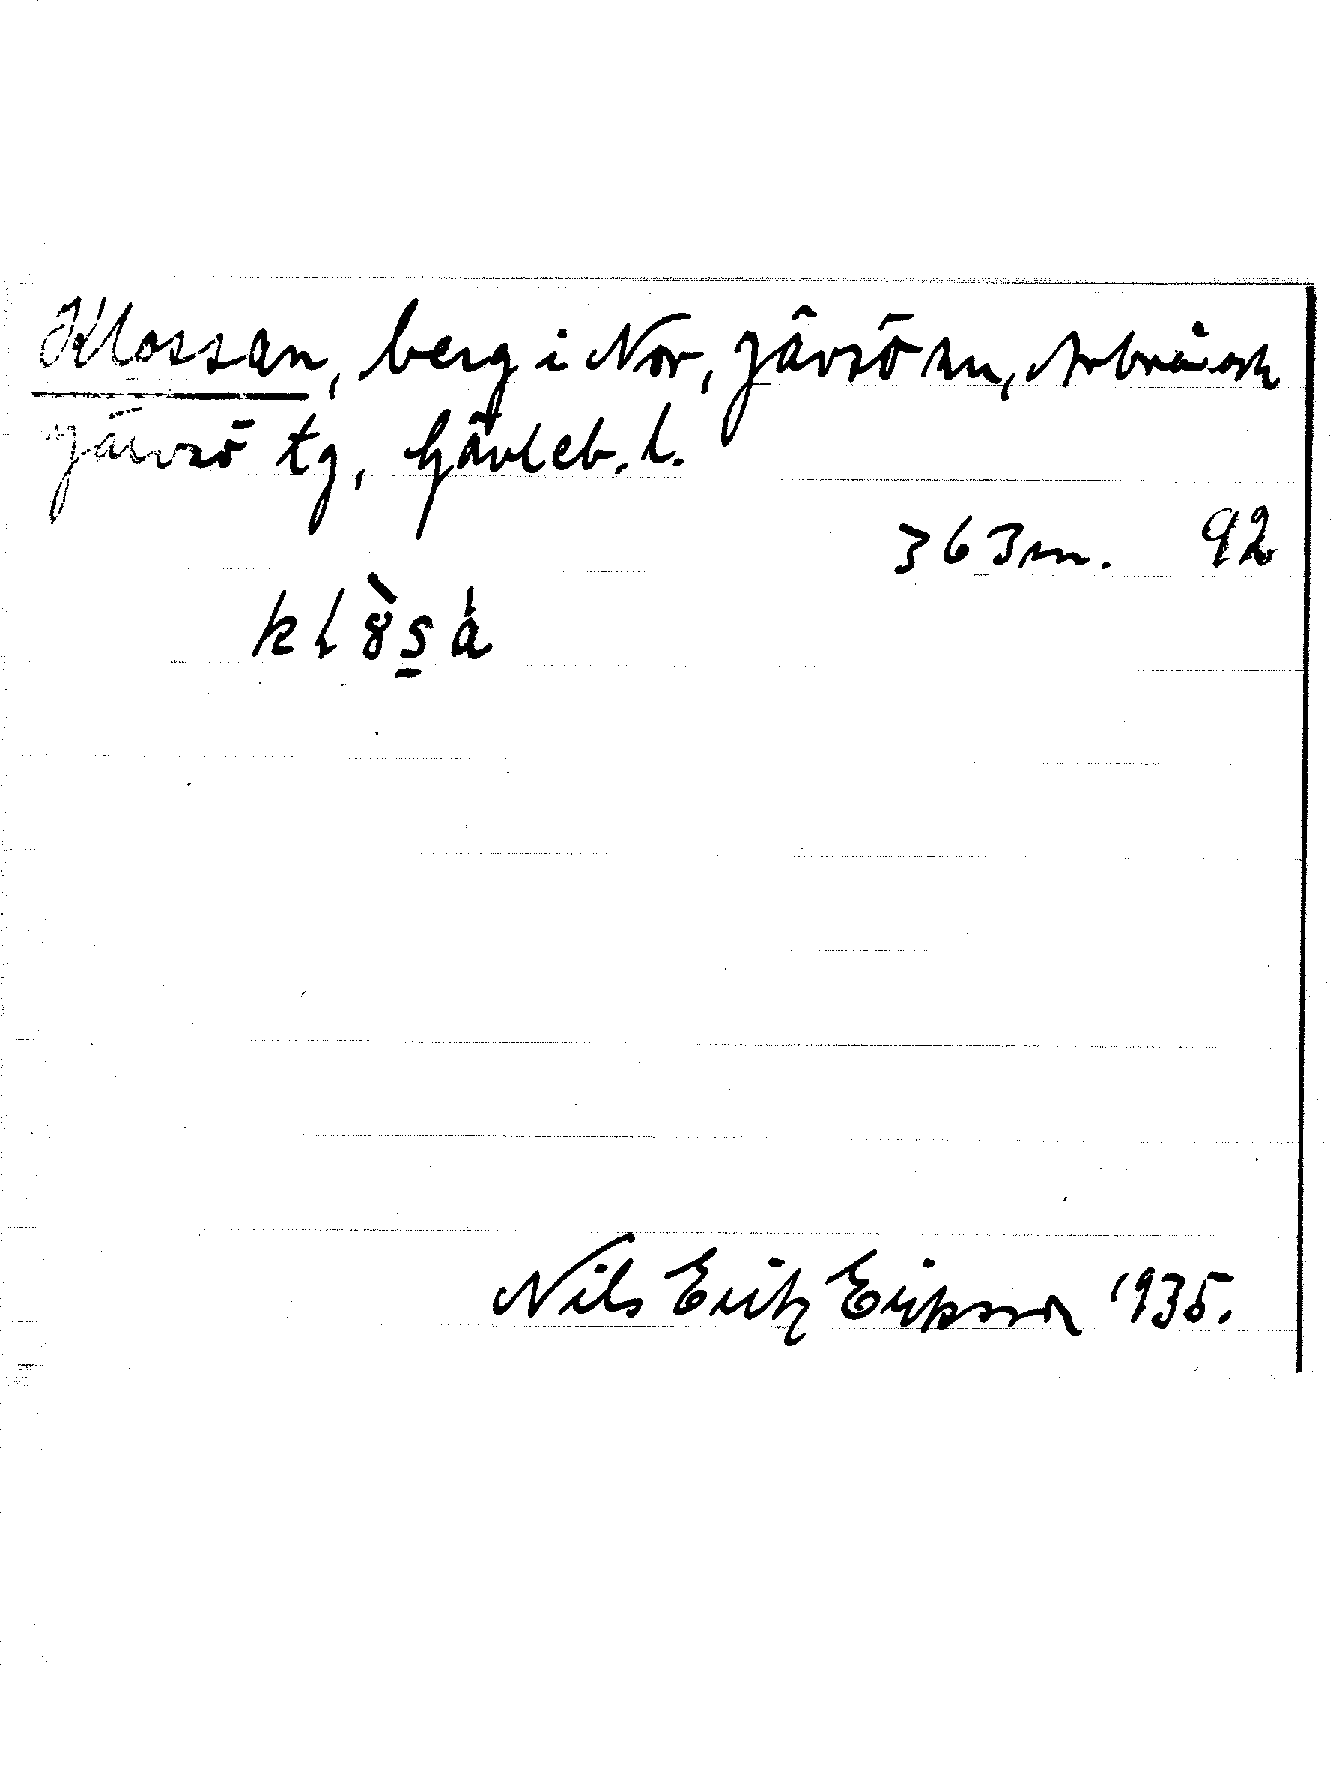 Klossan, berg i Nor, Järvsö sn, Arbrå och
Järvsö tg, Gävleb. l.
363 m. 92
kl8̀sȧ
Nils Erik Eriksson 1935.